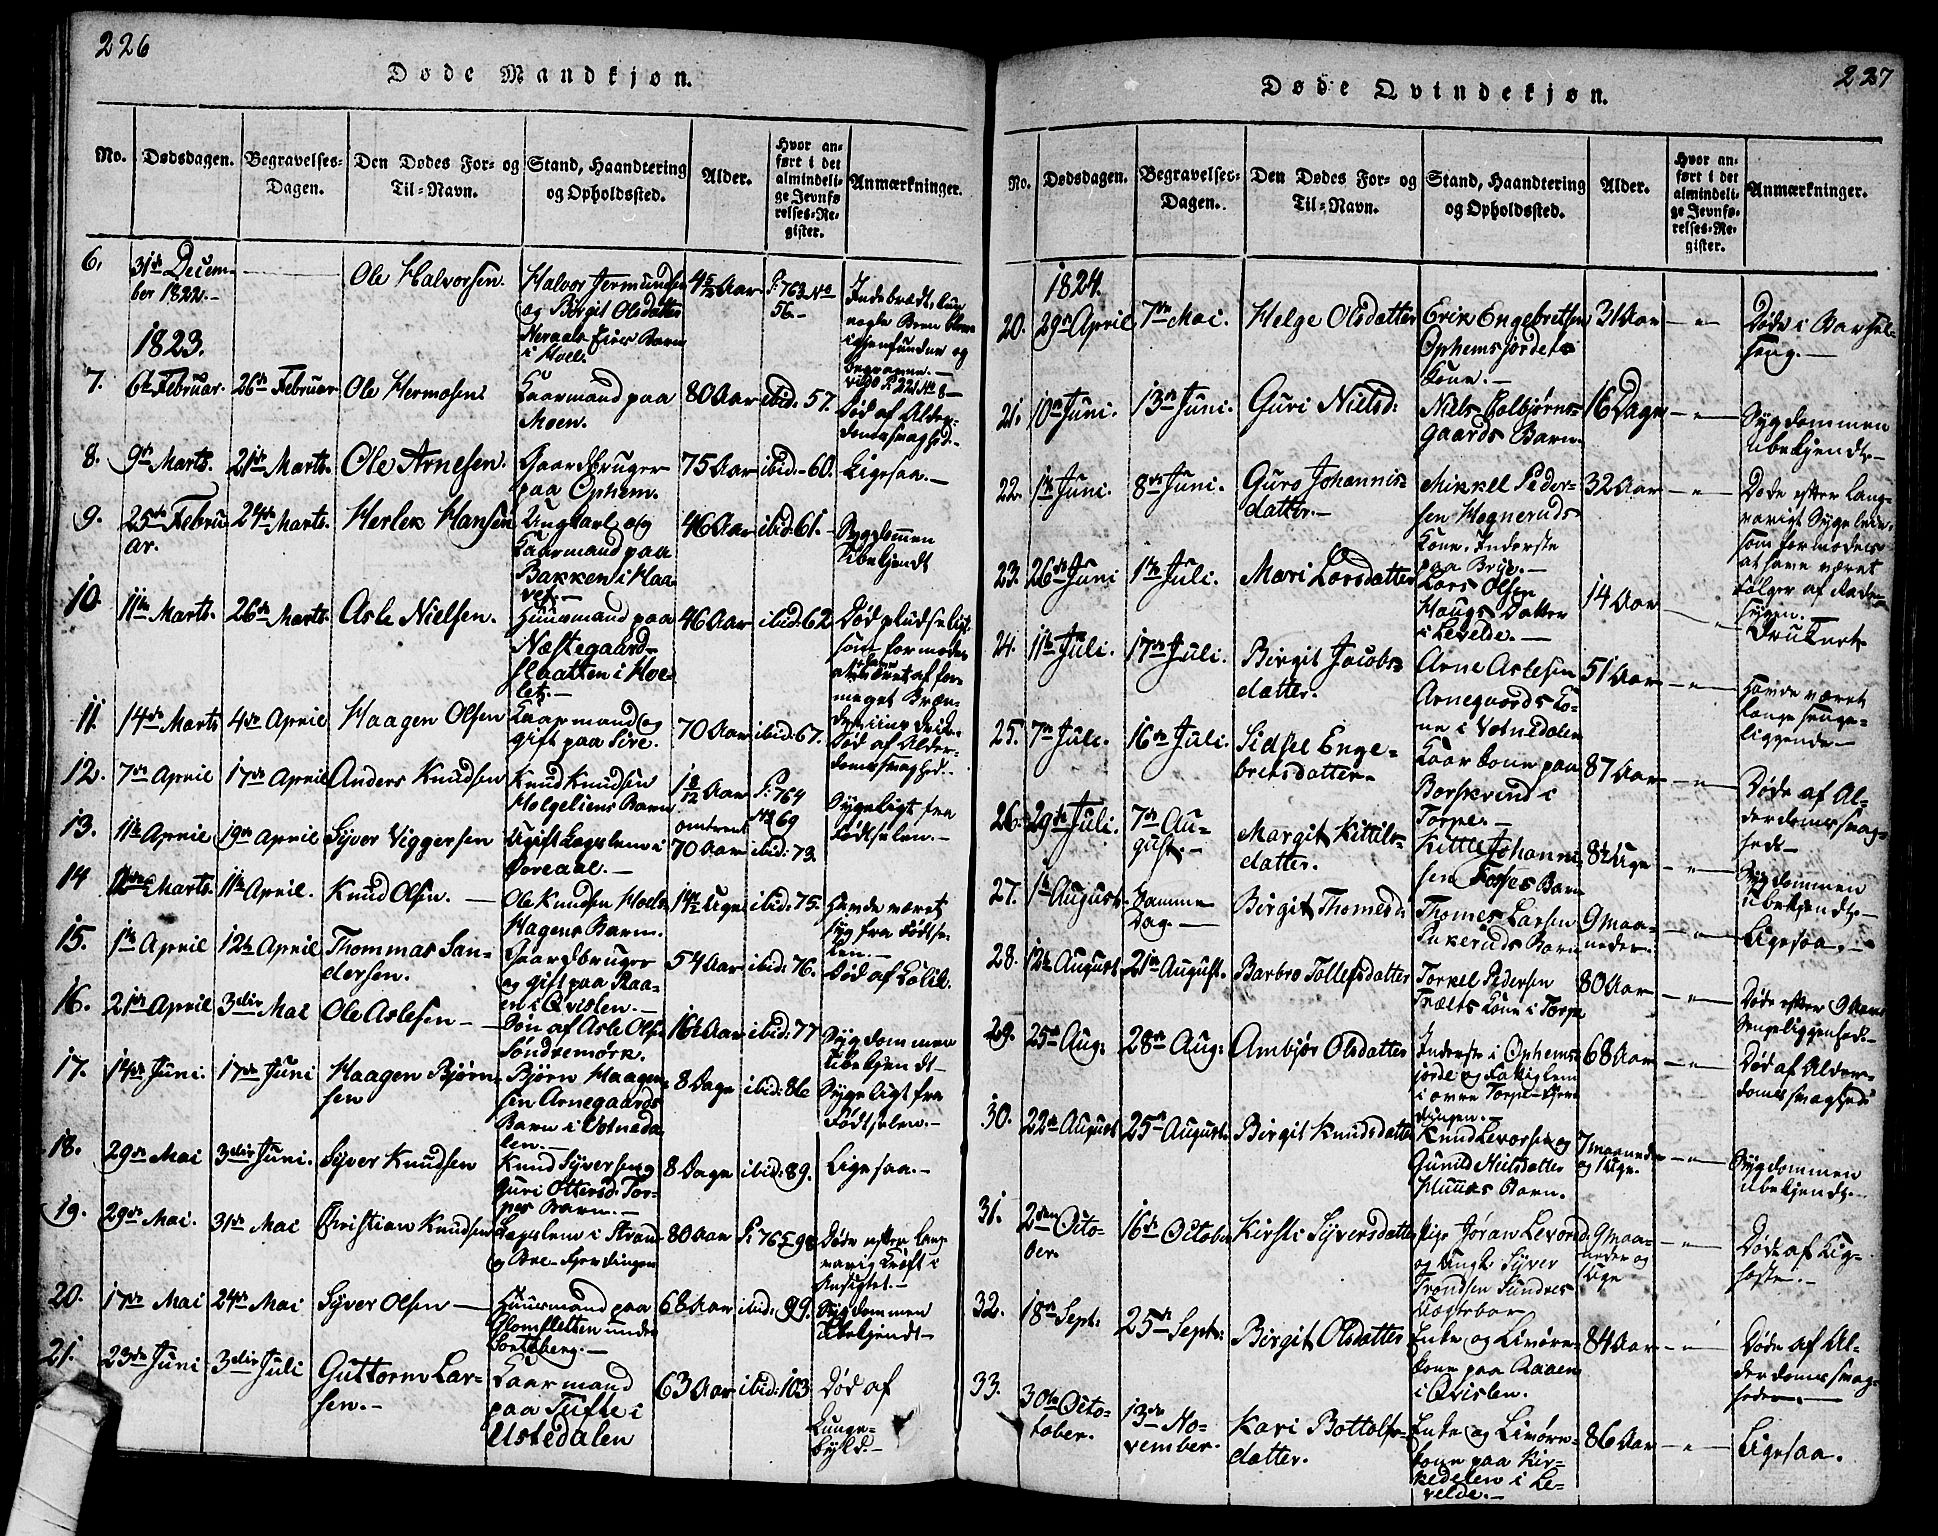 226
Døde Mandkjøn.
No.
Dødsdagen.
Begravelses-
Dagen.
Den Dødes For- og
Til-Navn.
Stand, Haandtering
og Opholdssted.
Alder.
Hvor an-
ført i det
almindeli-
ge Jevnfø-
relses-Re-
gister.
Anmærkninger.
6.
31te Decem-
ber 1822.
Ole Halvorsen.
Halvor
og Birgit Olsdatter
Barn
i Hoel.
Aar
P: 763 No
56.-
begravne.-
1823.
7.
6te Februar.
26de Februar
Ole Hermosens
Kaarmand paa
Moen.
80 Aar
ibid: 57.
Død af Alder-
domssvaghed.-
8.
9de Marts.
21de Marts.
Ole Arnesen.
Gaardbruger
paa Ophem.
75 Aar
ibid:-60.
Ligesaa.-
9.
25de Febru
ar.
24de Marts.
Herlek Hansen
Ungkarl og
Kaarmand paa
Bakken i Haa-
vet.-
46 Aar
ibid: 61.-
Sygdommen
Ubekjendt
10.
11te Marts.
26de Marts.
Asle Nielsen.
Huusmand paa
Næstegaard-
slaatten i Hoe-
let.-
46 Aar
ibid: 62
Død pludselig
som formodes
meget Bræn-
11.
14de Marts
4de April
Haagen Olsen
Kaarmand og
gift paa Sire.
70 Aar
ibid: 67.
Død af Alder-
domssvaghed.-
12.
7de April
17de April
Anders Knudsen
Knud Knudsen
Holgeliens Barn
1 8/12 Aar
P: 764
No 69
Sygeligt fra
Fødselen.-
13.
11te April
19de April
Syver Viggersen
Ugift Lægslem i
omtrent
70 Aar
ibid: 73.
14
Marts.
11te April.
Knud Olsen.
Ole Knudsen Hoels
Hagens Barn.
Uge
ibid: 75.
Havde været
syg fra Fødse-
len.-
15.
1ste April
12te April
Thommas San-
dersen.
Gaardbruger
og gift paa Raa-
en i Qvislen.-
54 Aar
ibid: 76.
Død af Kolik.
16.
21de April
3die Mai
Ole Aslesen
Søn af Asle Olsen
Søndremørk.
16½ Aar
ibid: 77
Sygdommen
Ubekjendt-
17.
14de Juni.
17de Juni
Haagen Bjørn-
sen
Bjørn Haagen-
sen Arnegaards
Barn i Votneda-
len.-
8 Dage
ibid: 86
Sygeligt fra
Fødselen.-
18.
29de Mai
3die Juni.
Syver Knudsen
Knud Syversen og
Guri Ottersd: Tor-
pes Barn.-
8 Dage
ibid: 89.
Ligesaa.-
19.
29de Mai.
31de Mai
Christian Knudsen
Lægslem i Strand
og Aae-Fjerdingen
80 Aar
P: 765
Døde efter lang
varig Kræft i
Ansigtet.-
20.
17de Mai
24de Mai
Syver Olsen
Huusmand paa
Blomsletten under
68 Aar
ibid: 99.
Sygdommen
Ubekjendt-
21.
23de Juni
3die Juli
Guttorm Lar-
sen.-
Kaarmand
paa Tufte i
Ustedalen
63 Aar
ibid: 103
Død af
Lunge-
byld.-
227
Døde Qvindekjøn.
No.
Dødsdagen.
Begravelses-
Dagen.
Den Dødes For- og
Til-Navn.
Stand, Haandtering
og Opholdssted.
Alder.
Hvor an-
ført i det
almindeli-
ge Jevnfø-
relses-Re-
gister.
Anmærkninger.
1824.
20.
29de April
7de Mai.
Helge Olsdatter
Erik Engebretsen
Ophemsjordets
Kone.-
31 Aar
Døde i Barsel-
seng.-
21.
10de Juni.
13de Juni.
Guri Nielsd:
Niels Kolbjørns-
gaards Barn.
16 Dage
Sygdommen
Ubekjendt-
22.
1ste Juni.
8de Juni.
Guro Johannis-
datter.-
Mikkel Peder-
sen Hogneruds
Kone, Inderste
paa Brye.-
32 Aar
Døde efter lang-
varigt Sygeleie,
som formodes
at have været
Følger af
23.
26de Juni
1ste Juli.
Mari Larsdatter
Lars Olsen
Haugs Datter
i Levelde.-
14 Aar
Druknet
24.
11te Juli.
17de Juli.
Birgit Jacobs-
datter.
Arne Aslesen
Arnegaards Ko-
ne i Votnedalen
51 Aar
Havde været
længe senge-
liggende-
25.
7de Juli.
16de Juli.
Sidsel Enge-
bretsdatter-
Kaarkone paa
Borskrend i
Torpe.-
87 Aar
Døde af Al-
derdomssvag-
hed-
26.
29de Juli.
7de Au-
gust.-
Margit Kittils-
datter.
Kittle Johanni-
sen Fosses Barn
8½ Uge
Sygdommen
Ubekjendt-
27.
1ste August
Samme
Dag.-
Birgit Thomesd:
Thomes Larsen
Barn
9 Maa-
neder.
Ligesaa.-
28.
12te August
21de August.
Barbro Tollefsdatter
Torkel Pedersen
Trælts Kone i Torpe
80 Aar
Døde efter 9 Aars
Sengeliggenhed.-
29.
25de Aug:
28de Aug:
Ambjør Olsdatter
Inderste i Ophems-
jorde og Fattiglem
i øvre Torpe-Fjer-
dingen.
68 Aar
Død af Alder-
domssvaghed
30.
22de August
25de August.
Birgit Knudsdatter
Knud Levorsen og
Gunild Neilsdatter
Barn.
7 maaneder
og 1 Uge.
Sygdommen
Ubekjendt.-
31.
2den Octo-
ber.
16de October
Kirsti Syversdatter
Pige Jøran Levorsd:
og Ungk: Syver
Trondsen Sundres
Uægtebarn
9 Maa-
neder og
1 Uge
Døde af Kig-
hoste.-
32.
18de Sept:
25de Sept:
Birgit Olsdatter
Enke og Livøre-
kone paa Raaen
i Qvislen.
84 Aar
Døde af Al-
derdomssvag-
heden.-
33.
30te Octo-
tober.
13de No-
vember.
Kari Bottolfs-
datter.
Enke og Livøre-
kone paa Kir-
kedelen i Le-
velde.-
86 Aar
Ligesaa.